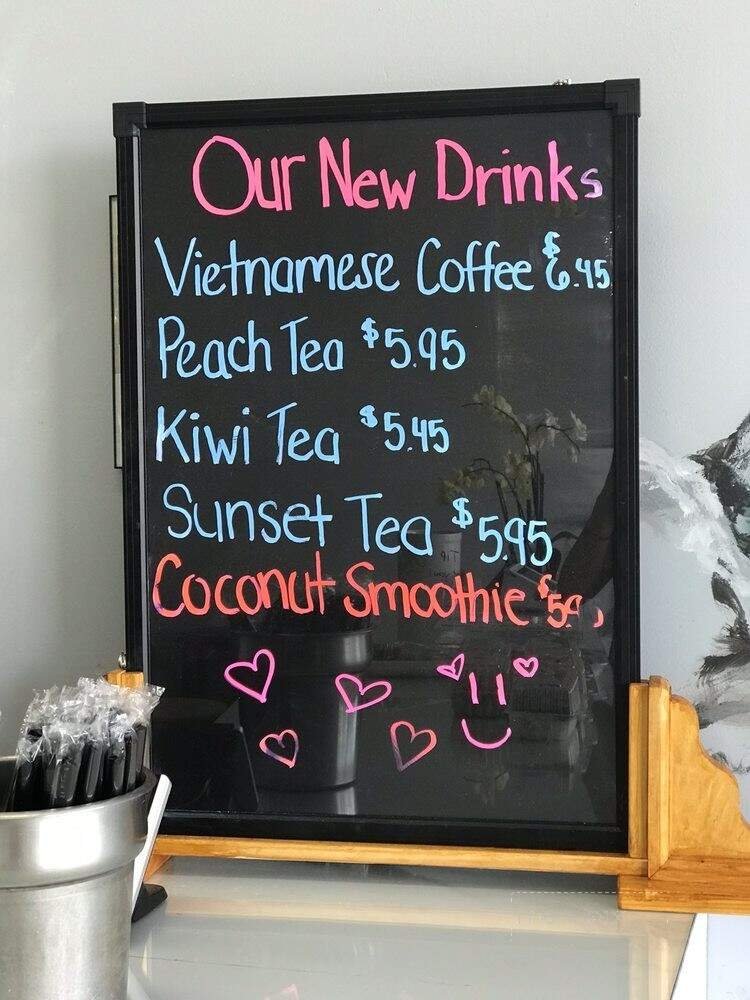 Our New Drinks
Vietnamese Coffee $6.45
Peach Tea $5.95
Kiwi Tea $5.45
Sunset Tea $5.95
Coconut Smoothie